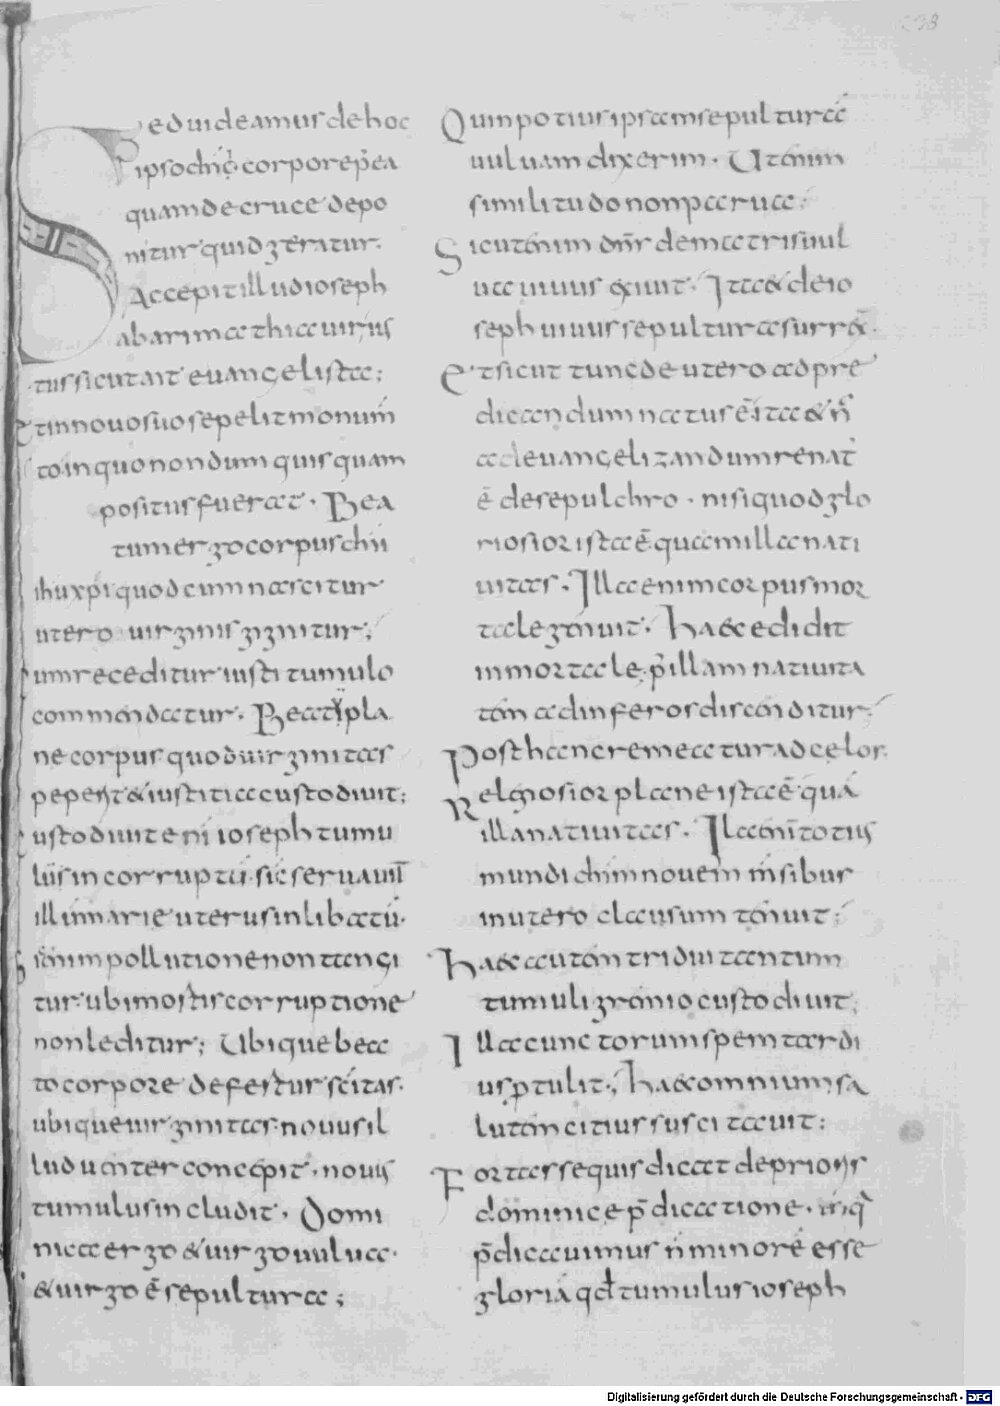 238
Sed uideamus de hoc
ipso dnico corpore p̄ea
quam de cruce depo
nitur quid geratur.
Accepit illud ioseph
ab arimathia uir ius
tus sicut ait euangelista;
Et in nouo suo sepelit monum̄
to in quo nondum quisquam
positus fuerat. Bea
tum ergo corpus dn̄i
ihu xpi quod cum nascitur
utero uirginis gignitur;
Cum receditur iusti tumulo
commendatur. Beatū pla
ne corpus quod uirginitas
peperit & iustitia custodiuit;
Custodiuit eni ioseph tumu
lus incorruptū. sic seruauit
illū marie uterus inlibatū.
hic enim pollutione non tangi
tur. ubi mortis corruptione
non leditur; Ubique bea
to corpore defertur scitas.
ubique uirginitas. nouus il
lud uenter concepit. nouus
tumulus includit. Domi
nica ergo & uirgo uulua.
& uirgo ē sepultura;
Quin potius ipsam sepulturā
uuluam dixerim. Ut enim
similitudo non parua;
Sicut enim dn̄s de matris uul
ua uiuus exiuit. Ita & de io
seph uiuus sepultura surrex̄.
Et sicut tunc de utero ad pre
dicandum natus ē. ita & n̄c
ad euangelizandum renat'
ē de sepulchro. nisi quod glo
riosior ista ē quam illa nati
uitas. Illa enim corpus mor
tale genuit. haec edidit
inmortale. p̄ illam natiuita
tem ad inferos discenditur;
Post hanc remeatur ad celos.
Religiosior plane ista ē quā
illa natiuitas. Illa enī totius
mundi dn̄m nouem m̄sibus
in utero clausum tenuit;
haec autem triduitantum
tumuli gremio custodiuit;
Illa cunctorum spem tardi
us ptulit; haec omnium sa
lutem citius suscitauit;
Fortasse quis dicat de prioris
dominice p̄dicatione. in q̄
p̄dicauimus n̄ minorē esse
gloriā qd̄ tumulus ioseph
Digitalisierung gefördert durch die Deutsche Forschungsgemeinschaft - DFG